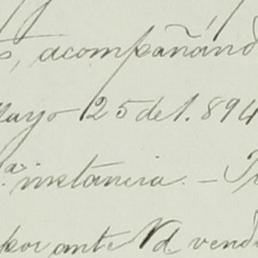 acompañand
Mayo 25 de 1.894
instancia. —
por ante Vd vend